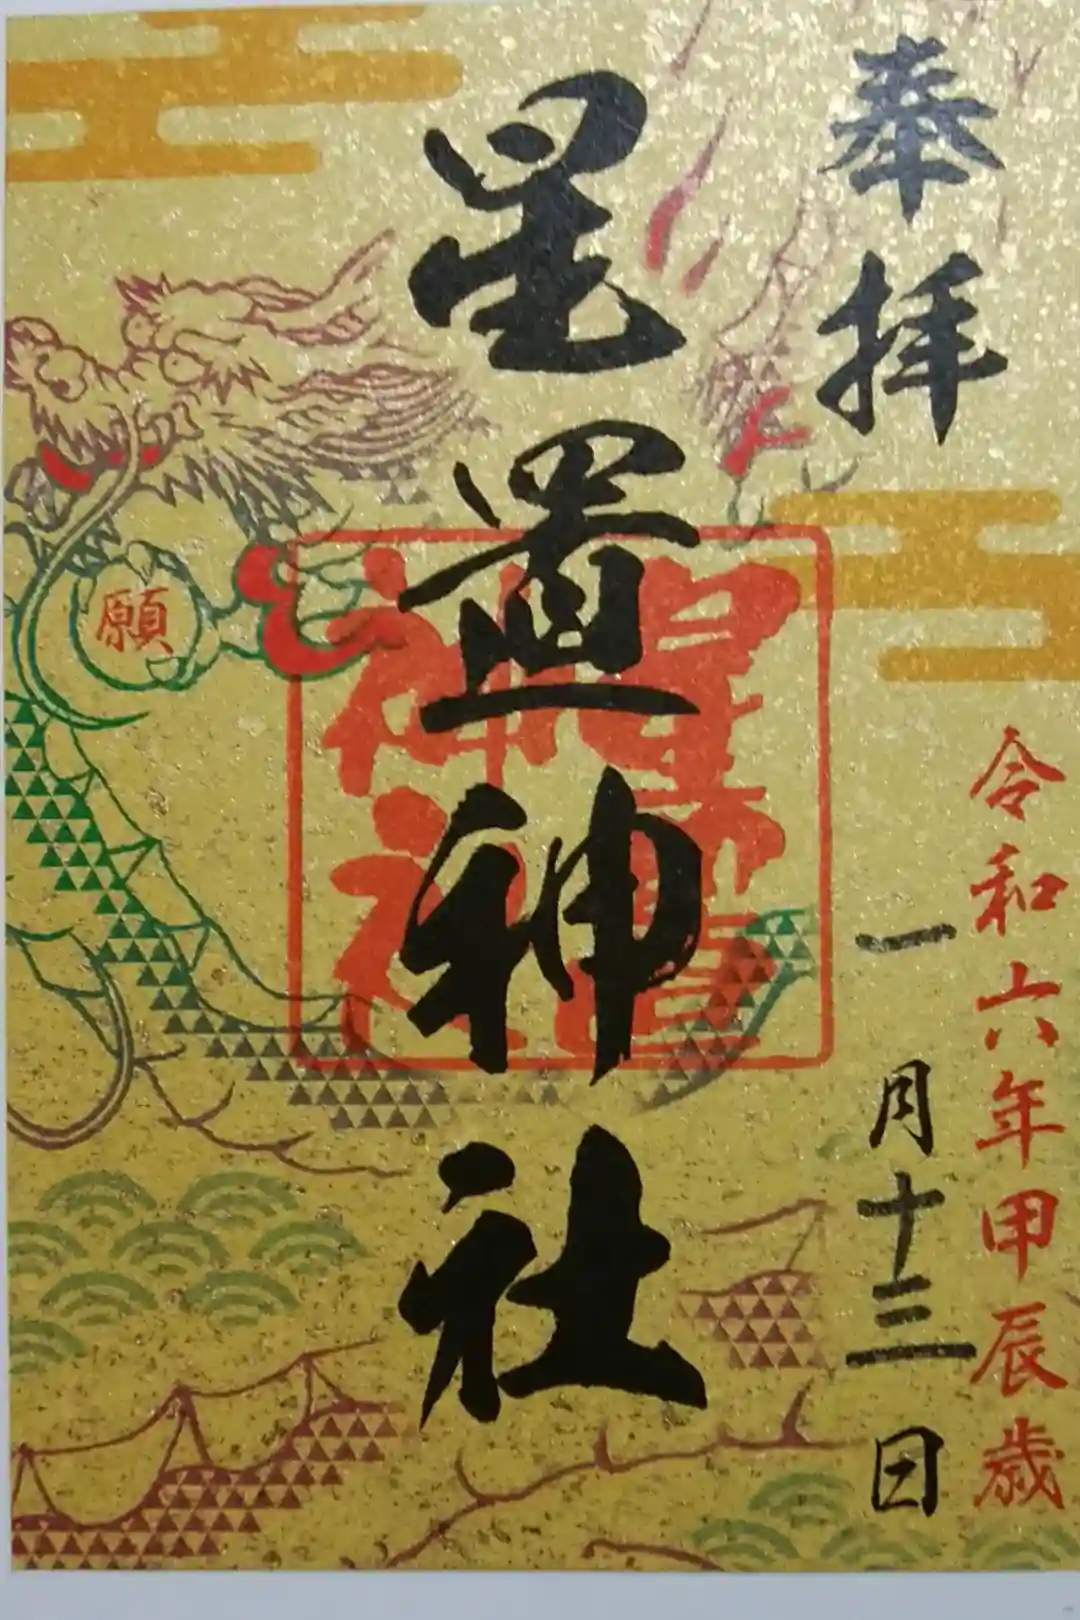 奉拝
令和六年甲辰歳
一月十三日
星置神社
星置神社
願